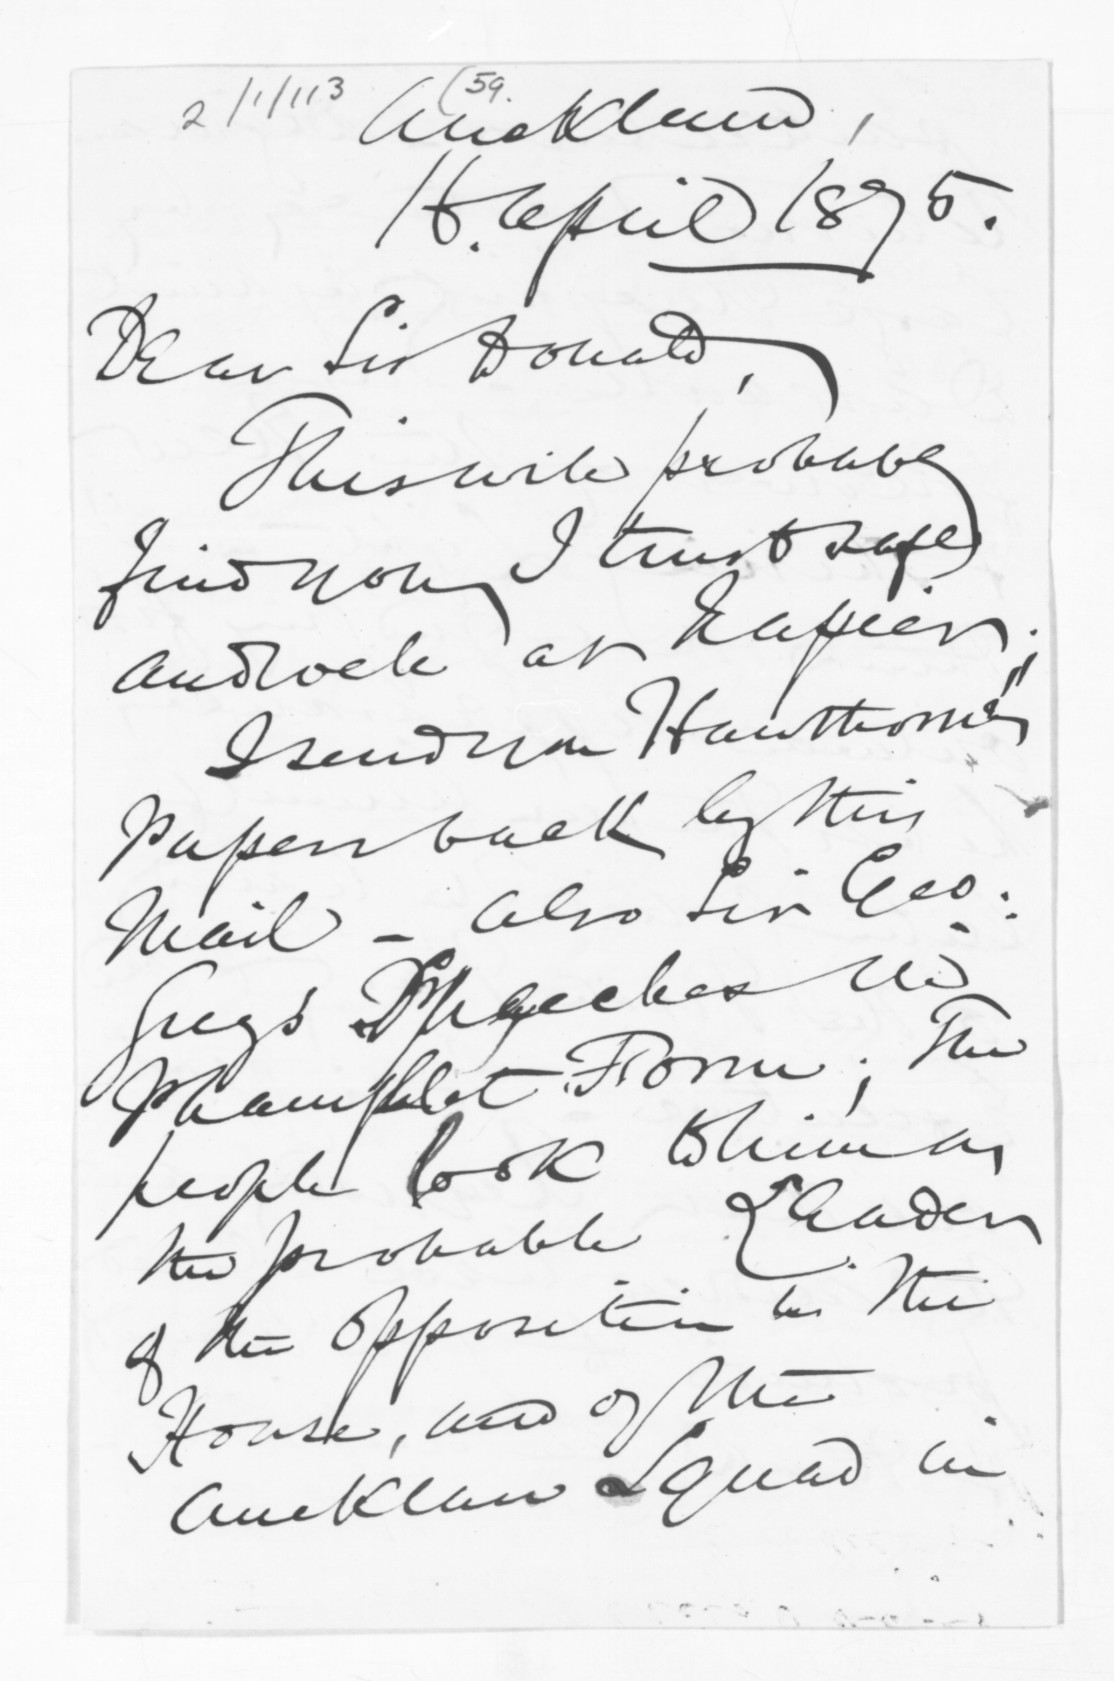 2/1/113 (59.
Auckland,
16. April 1875.
Dear Sir Donald,
This will probably
find you, I trust safe
and well at Napier.
I send you Hawthorne's
Papers back by this
Mail - also Sir Geo:
Grey's Speeches in
Phamphlet Form; The
people look to him as
the probable Leader
of the Opposition in the
House, and of the
Auckland Squad in